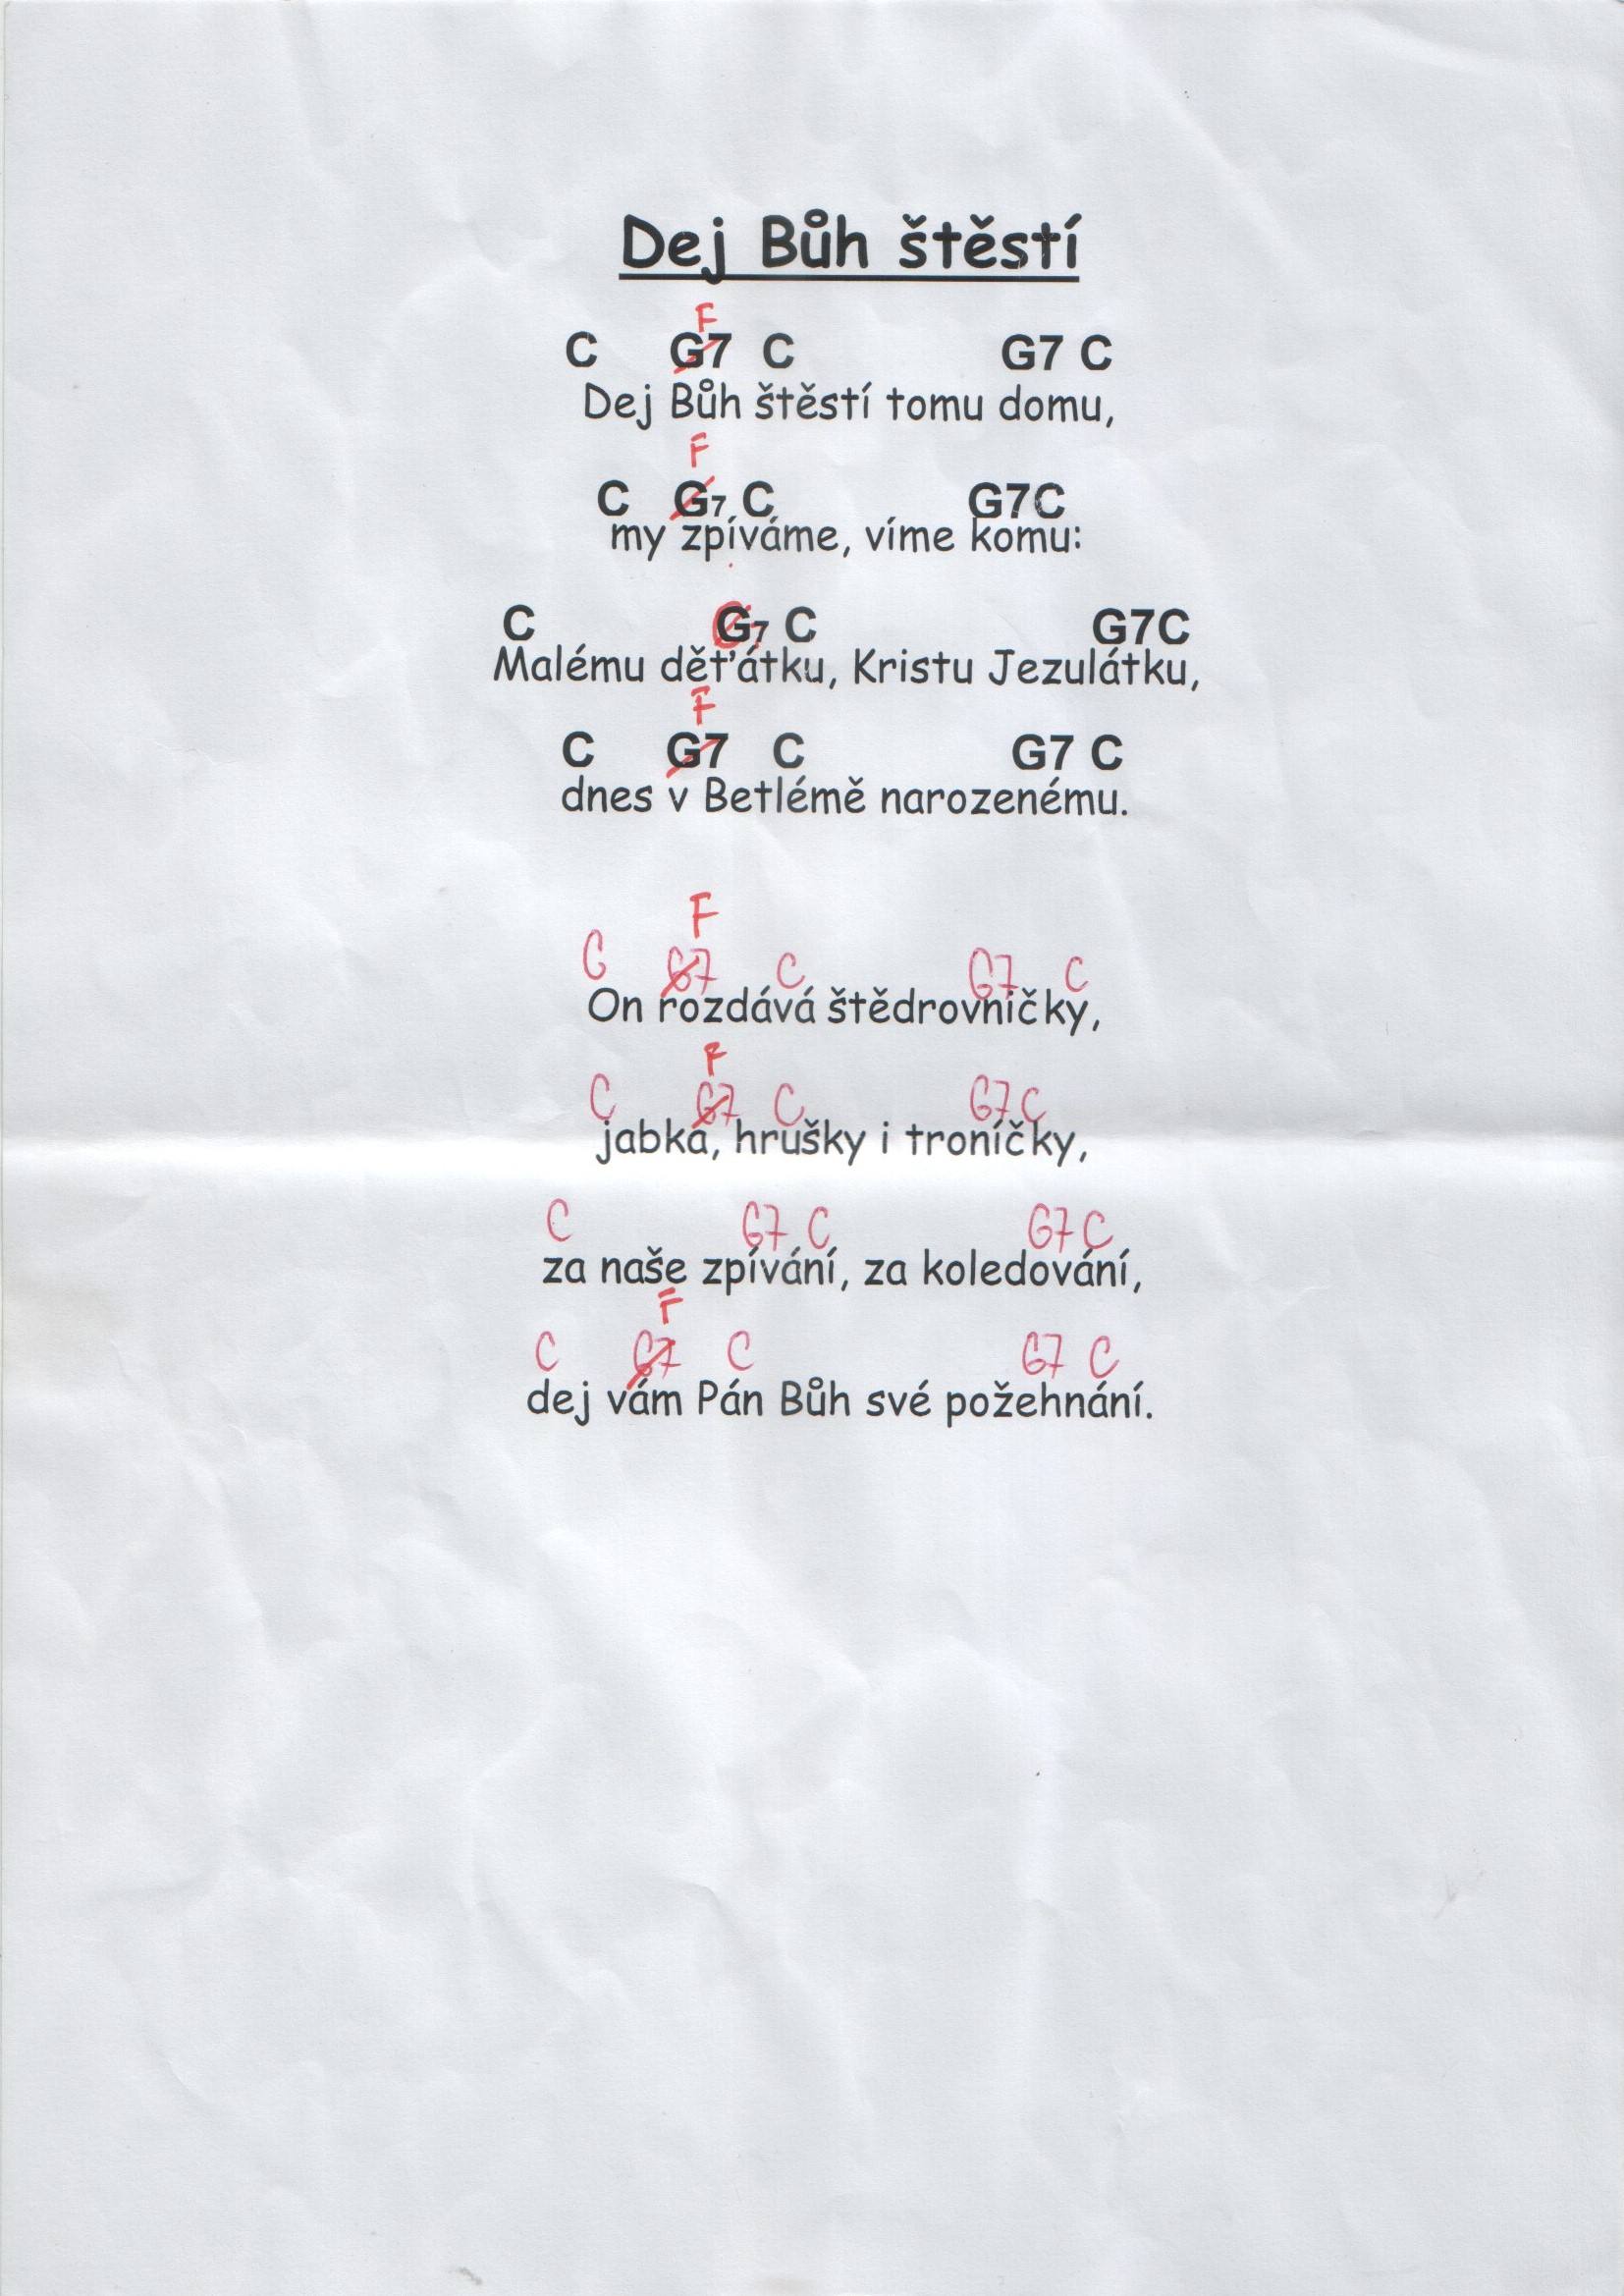 Dej Bůh štěstí
F
C G7 C G7 C
Dej Bůh štěstí tomu domu,
F
C G7 C G7C
my zpíváme, víme komu:
C G7 C G7C
Malému děťátku, Kristu Jezulátku,
F
C G7 C G7 C
dnes v Betlémě narozenému.
F
C G7 C G7 C
On rozdává štědrovničky,
F
C G7 C G7 C
jabka, hrušky i troníčky,
C G7 C G7 C
za naše zpívání, za koledování,
F
C G7 C G7 C
dej vám Pán Bůh své požehnání.